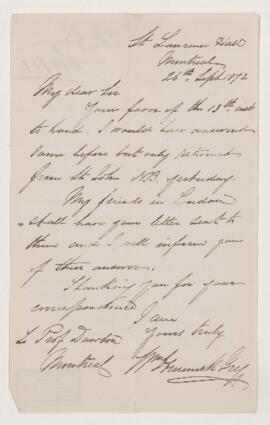 St Lawrence Hall
Montreal
26th Sept 1872
My dear Sir
Your favor of the 13th inst
to hand. I would have answered
same before but only returned
from St John NB. yesterday.
My friends in London
shall have your letter sent to
them and I will inform you
of their answer.
Thanking you for your
correspondence
I am
Yours truly
To Prof Dawson
Montreal
Wm